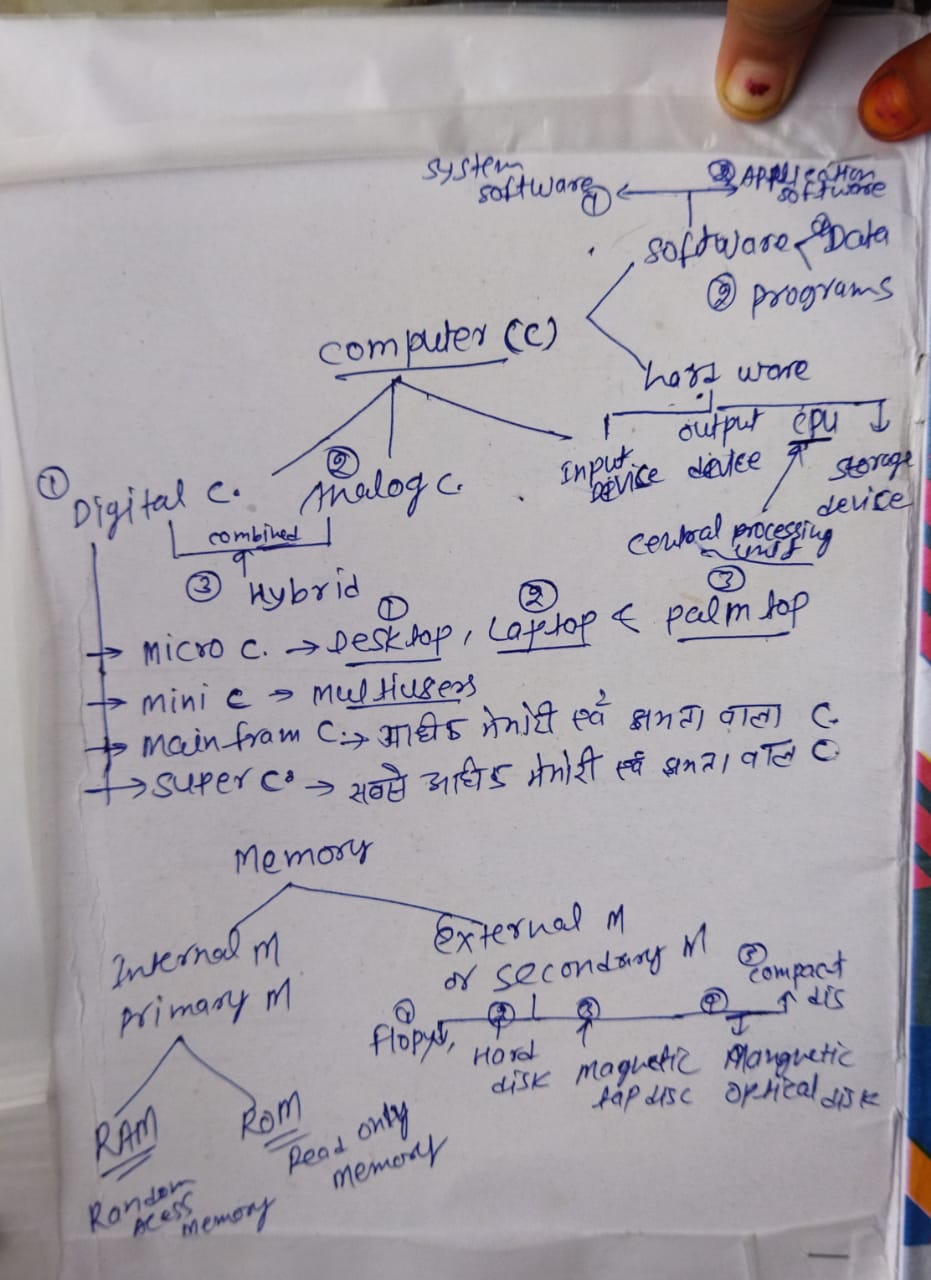 system
software ①
② Application
software
software < ① Data
② programs
computer (C)
hard ware
Input
DEVICE
output
device
CPU
storage
device
central processing
unit
① Digital C.
② Analog C.
combined
③ Hybrid
→ micro C. → ① Desktop, ② Laptop & ③ palm top
→ mini C → multiusers
→ mainfram C. → आधीक मेमोरी एवं क्षमता वाला C.
→ super C. → सबसे आधीक मेमोरी एवं क्षमता वाल C
Memory
Internal M
primary M
External M
or secondary M
① flopy,
② Hard
disk
③ magnetic
tap disc
④ Mangnetic
optical disk
⑤ compact
dis
RAM
Random
Acess
memory
ROM
Read only
memory